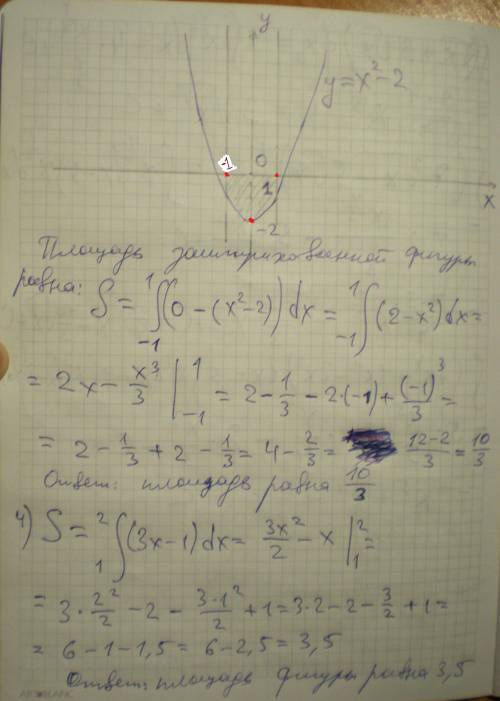 y
y = x² - 2
-1 0
1 x
-2
Площадь заштрихованной фигуры
равна: S = ∫₋₁¹ (0 - (x² - 2)) dx = ∫₋₁¹ (2 - x²) dx =
= 2x - x³/3 |₋₁¹ = 2 - 1/3 - 2·(-1) + (-1)³/3 =
= 2 - 1/3 + 2 - 1/3 = 4 - 2/3 = (12-2)/3 = 10/3
Ответ: площадь равна 10/3
4) S = ∫₁² (3x - 1) dx = 3x²/2 - x |₁² =
= 3·2²/2 - 2 - 3·1²/2 + 1 = 3·2 - 2 - 3/2 + 1 =
= 6 - 1 - 1,5 = 6 - 2,5 = 3,5
Ответ: площадь фигуры равна 3,5